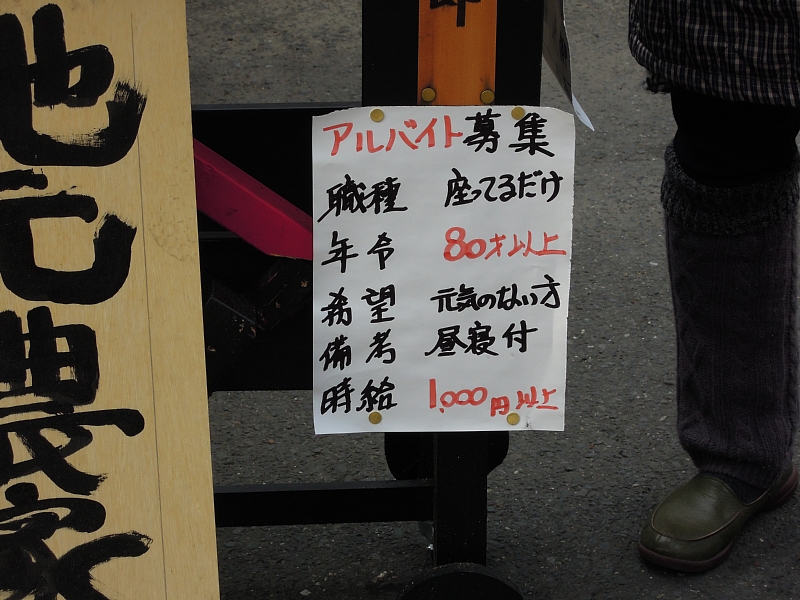 地元農家
アルバイト募集
職種 座ってるだけ
年令 80才以上
希望 元気のない方
備考 昼寝付
時給 1,000円以上